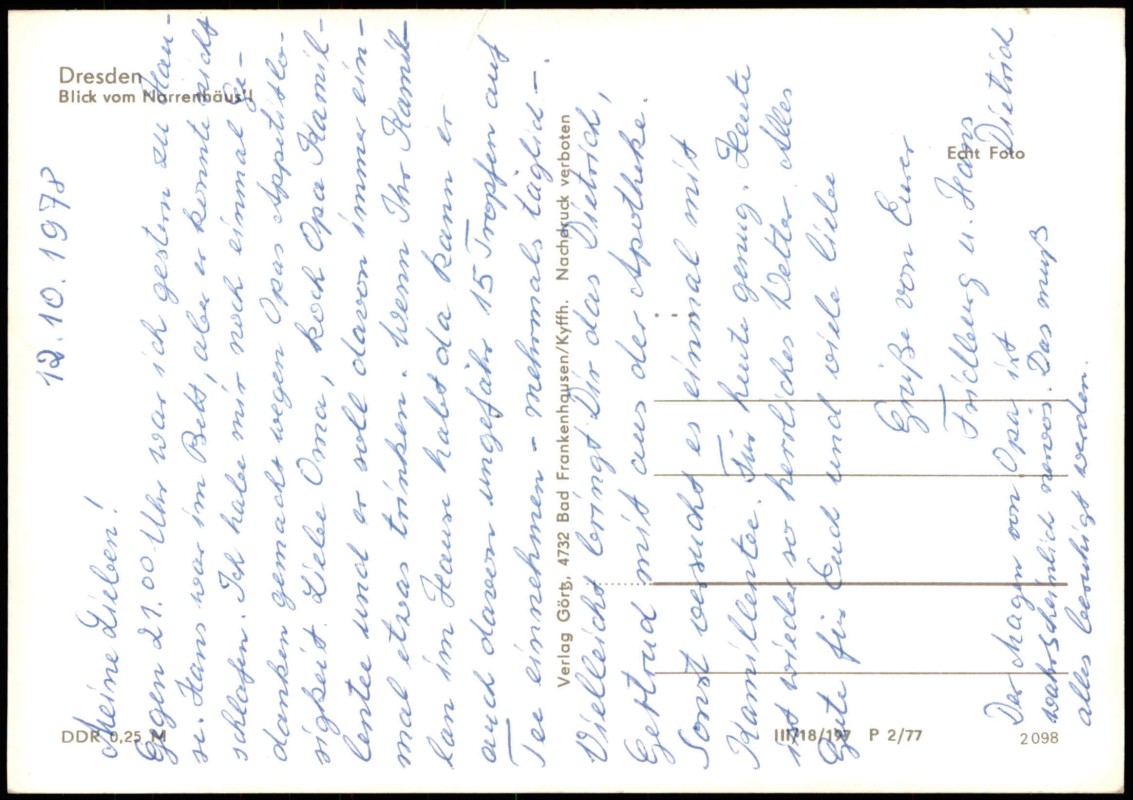 Dresden
Blick vom Narrenhäus'l
Echt Foto
12. 10. 1978
Meine Lieben!
Gegen 21.00 Uhr war ich gestern zu Hau-
se. Hans war im Bett, aber er konnte nicht
schlafen. Ich habe mir noch einmal Ge-
danken gemacht wegen Opas Appetitlo-
sigkeit. Liebe Oma, koch Opa Kamil-
lentee und er soll davon immer ein-
mal etwas trinken. Wenn Ihr Kamil-
lan im Hause habt da kann er
auch davon ungefähr 15 Tropfen auf
Tee einnehmen - mehrmals täglich -.
Vielleicht bringt Dir das Dietrich,
Gertrud mit aus der Apotheke.
Sonst versucht es einmal mit
Kamillentee. Für heute genug. Heute
ist wieder so herrliches Wetter. Alles
Gute für Euch und viele liebe
Grüße von Eurer
Friedburg u. Hans
Dietrich
Der Magen von Opa ist
wahrscheinlich nervös. Das muß
alles beruhigt werden.
Verlag Görtz, 4732 Bad Frankenhausen/Kyffh. Nachdruck verboten
DDR 0,25 M
III/18/197 P 2/77
2098